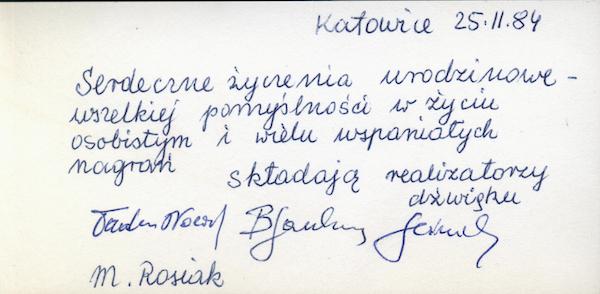 Katowice 25.II.84
Serdeczne życzenia urodzinowe -
wszelkiej pomyślności w życiu
osobistym i wielu wspaniałych
nagrań
składają realizatorzy
dźwięku
M. Rosiak